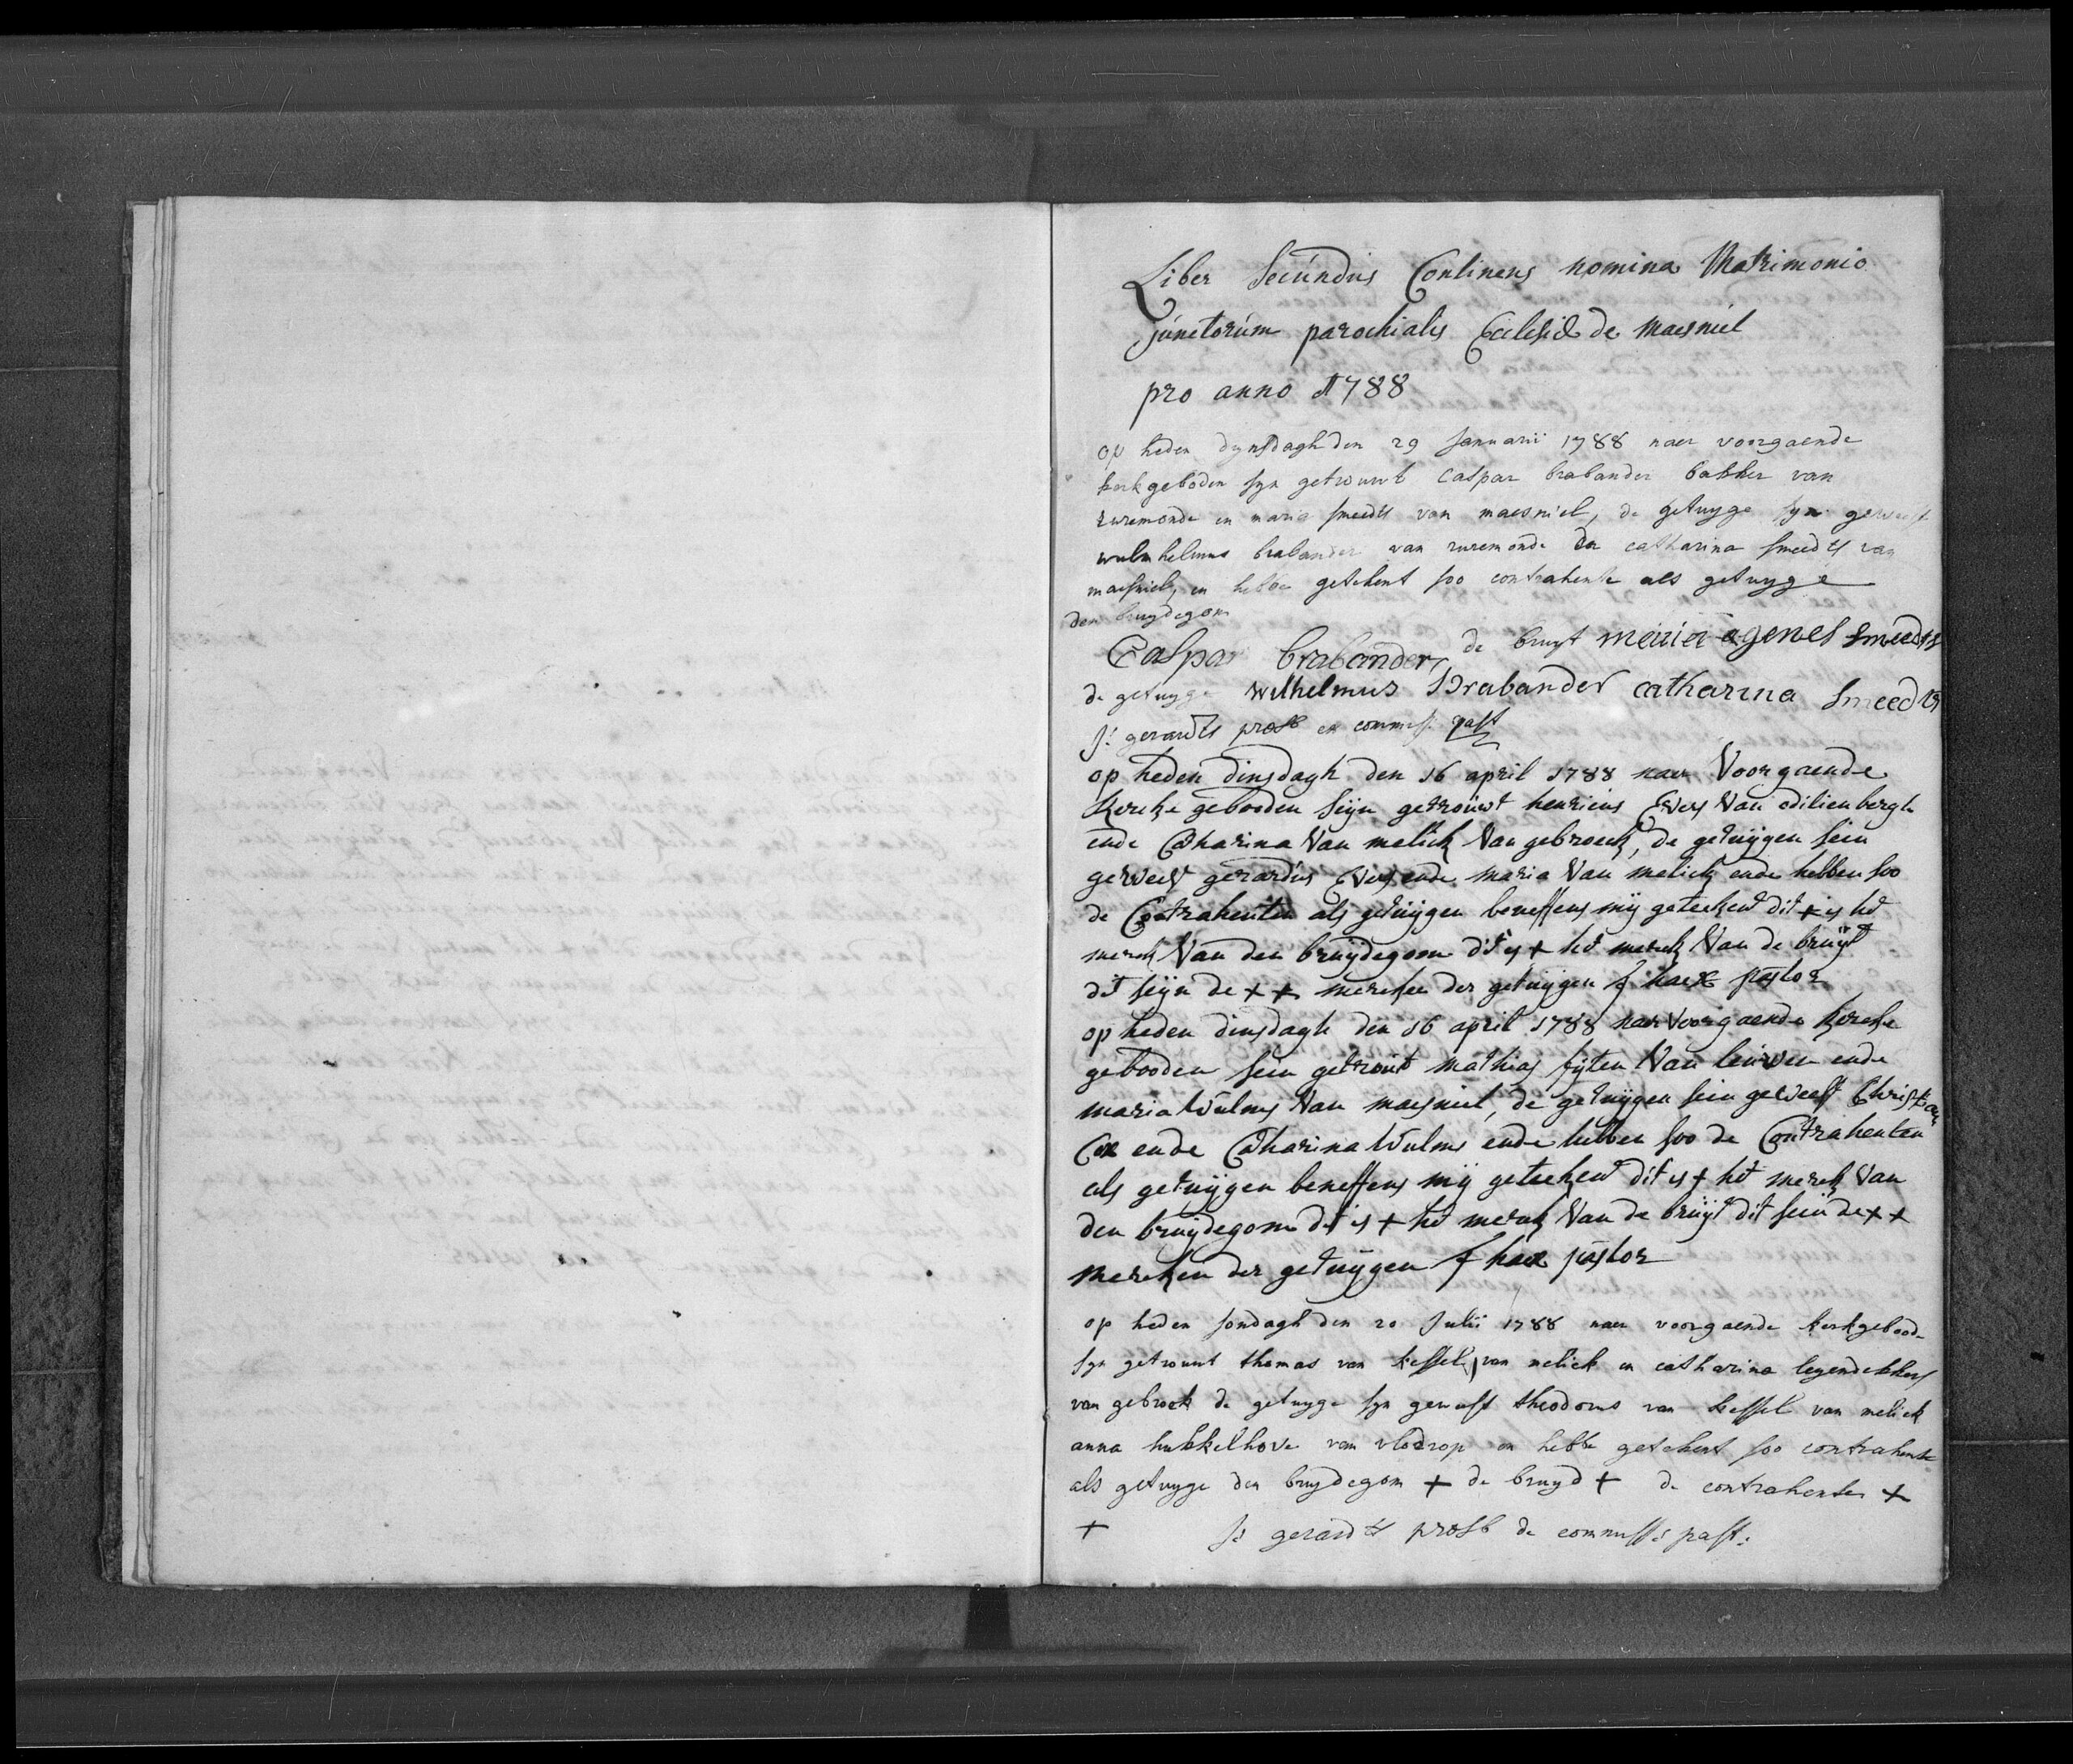 Liber Secúndús Continens nomina Matrimonio
júnctorúm parochialis Ecclesiæ de Maesniel
pro anno 1788
op heden dynsdagh den 29 Januarii 1788 naer voorgaende
kerkgeboden syn getrouwt Caspar brabander bakker van
ruremonde en maria smeedts van maesniel, de getuyge syn geweest
wilhelmus brabander van ruremonde en catharina smeedts van
maesniel, en hebbe getekent soo contrahente als getuyge
den bruydegom
Caspar brabander, de bruyt meiria agenes smeedts
de getuyge wilhelmus Brabander catharina smeedts
J: gerardts presb en commiss. past
op heden dinsdagh den 16 april 1788 naer Voorgaende
Kercke gebooden seijn getroúwt henricus Evers Van odilienbergh
ende Catharina Van melick Van gebroeck, de getuijgen sein
geweest gerardús Evers ende maria Van melick ende hebben soo
de Contrahenten als getuijgen beneffens mij geteekent dit + is het
merck Van den bruijdegom dit is + het merck Van de bruijt
dit seijn de + + mercken der getuijgen f haex pastor
op heden dinsdagh den 16 april 1788 naer Voorgaende kercke
gebooden sein getroút mathias fijten Van leúwen ende
maria Wúlms Van maesniel, de getuijgen sein geweest Christian
Cox ende Catharina Wulms ende hebben soo de Contrahenten
als getuijgen beneffens mij geteekent dit is + het merck Van
den bruijdegom dit is + het merck Van de bruijt dit sein de + +
mercken der getuijgen f haex pastor
op heden sondagh den 20 Julii 1788 naer voorgaende kerkgeboode
syn getrouwt thomas van kessel, van melick en catharina legendekkers
van gebroek de getuyge syn geweest theodorus van kessel van melick
anna hukkelhove van vlodrop en hebbe getekent soo contrahente
als getuyge den bruydegom + de bruyd + de contrahenten +
+ J: gerardts presb de commiss: past: